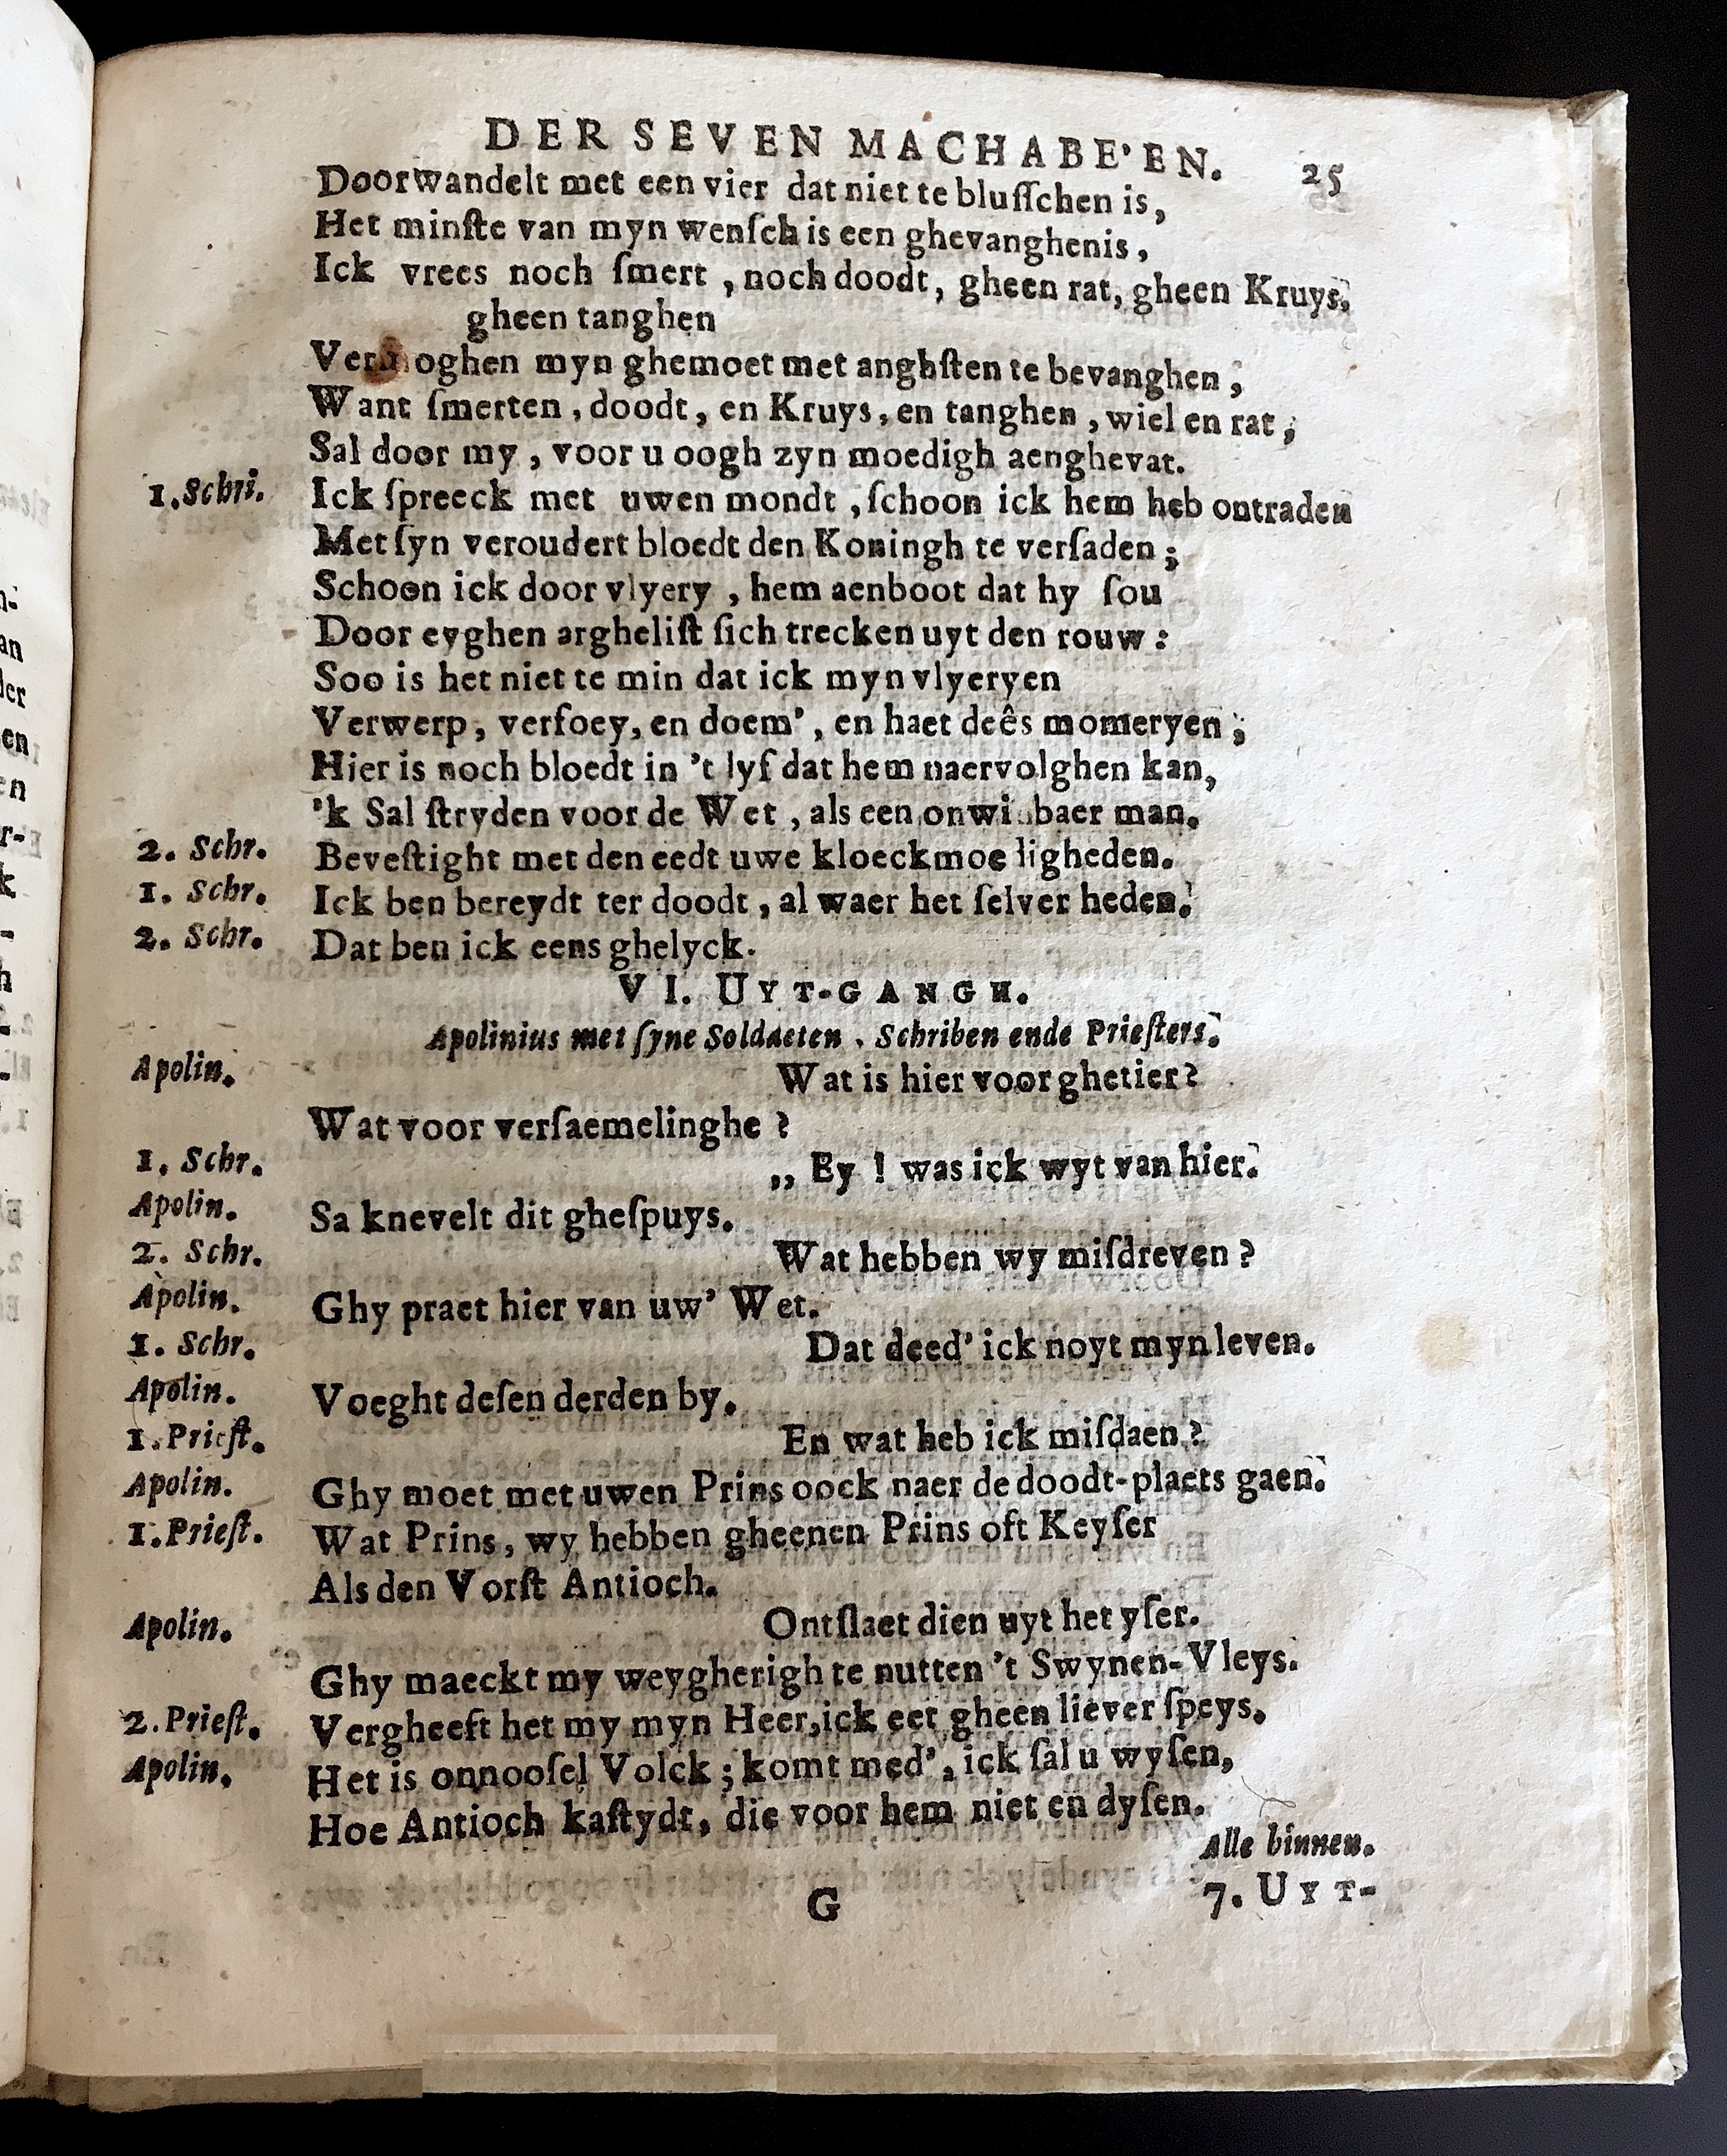 DER SEVEN MACHABE'EN. 25
Doorwandelt met een vier dat niet te blusſchen is,
Het minſte van myn wenſch is een ghevanghenis,
Ick vrees noch ſmert, noch doodt, gheen rat, gheen Kruys,
gheen tanghen
Vermoghen myn ghemoet met anghſten te bevanghen,
Want ſmerten, doodt, en Kruys, en tanghen, wiel en rat,
Sal door my, voor u oogh zyn moedigh aenghevat.
1. Schri. Ick ſpreeck met uwen mondt, ſchoon ick hem heb ontraden
Met ſyn veroudert bloedt den Koningh te verſaden;
Schoon ick door vlyery, hem aenboot dat hy ſou
Door eyghen argheliſt ſich trecken uyt den rouw:
Soo is het niet te min dat ick myn vlyeryen
Verwerp, verfoey, en doem', en haet deês momeryen;
Hier is noch bloedt in 't lyf dat hem naervolghen kan,
'k Sal ſtryden voor de Wet, als een onwinbaer man.
2. Schr. Beveſtight met den eedt uwe kloeckmoedigheden.
1. Schr. Ick ben bereydt ter doodt, al waer het ſelver heden.
2. Schr. Dat ben ick eens ghelyck.
VI. UYT-GANGH.
Apolinius met ſyne Soldaeten, Schriben ende Prieſters.
Apolin. Wat is hier voor ghetier?
Wat voor verſaemelinghe?
1. Schr. „ Ey! was ick wyt van hier.
Apolin. Sa knevelt dit gheſpuys.
2. Schr. Wat hebben wy miſdreven?
Apolin. Ghy praet hier van uw' Wet.
1. Schr. Dat deed' ick noyt myn leven.
Apolin. Voeght deſen derden by.
1. Prieſt. En wat heb ick miſdaen?
Apolin. Ghy moet met uwen Prins oock naer de doodt-plaets gaen.
1. Prieſt. Wat Prins, wy hebben gheenen Prins oft Keyſer
Als den Vorſt Antioch.
Apolin. Ontſlaet dien uyt het yſer.
Ghy maeckt my weygherigh te nutten 't Swynen-Vleys.
2. Prieſt. Vergheeft het my myn Heer, ick eet gheen liever ſpeys.
Apolin. Het is onnooſel Volck; komt med', ick ſal u wyſen,
Hoe Antioch kaſtydt, die voor hem niet en dyſen.
Alle binnen.
G 7. UYT-